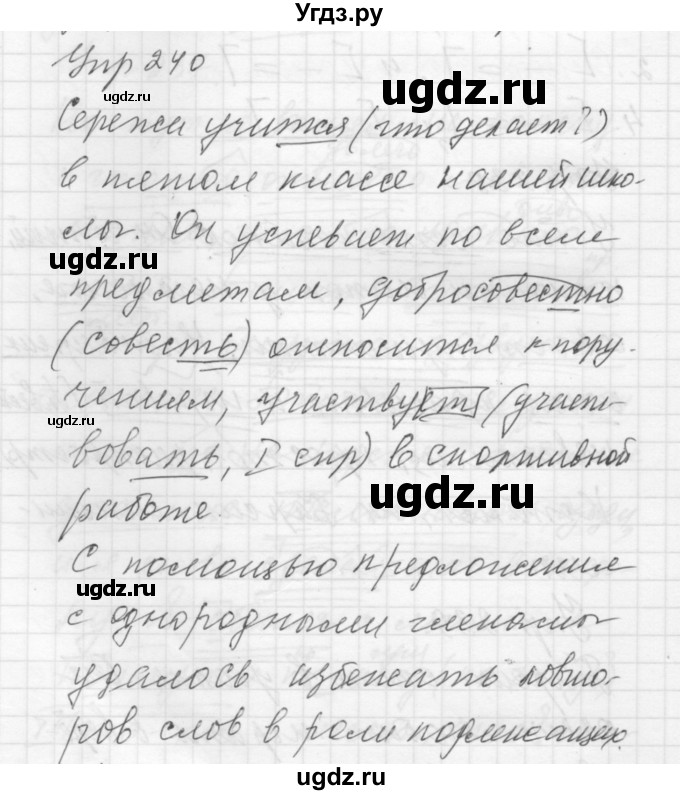 Угдз.ру
Упр 240
ugdz.ru
ugdz.ru
Сережа учится (что делает?)
в пятом классе нашей шко-
лы. Он успевает по всем
ugdz.ru
предметам, добросовестно
(совесть) относится к пору-
чениям, участвует (участ-
ugdz.ru
вовать, I спр) в спортивной
ugdz.ru
работе.
С помощью предложения
ugdz.ru
с однородными членами
удалось избежать повто-
ров слов в роли подлежащих.
ugdz.ru
ugdz.ru